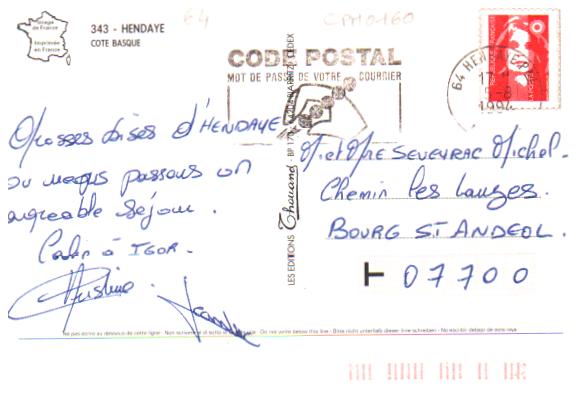 64
CPM0160
Image de France
Imprimée en France
343 - HENDAYE
COTE BASQUE
CODE POSTAL
MOT DE PASSE DE VOTRE COURRIER
64 HENDAYE
17 H
5-8
1994
Grosses bises d'HENDAYE
ou nous passons un
agreable séjour.
à IGOR.
Christine
LES EDITIONS Thouand - BP 1 BIARRITZ CEDEX
Mr et Mme SEVEYRAC Michel.
Chemin les Lauzes.
BOURG ST ANDEOL.
T 07700
Ne pas écrire au dessous de cette ligne - Non scrivere al di sotto di - Do not write below this line - Bitte nicht unterhalb dieser linie schreiben - No escribir debajo de esta raya